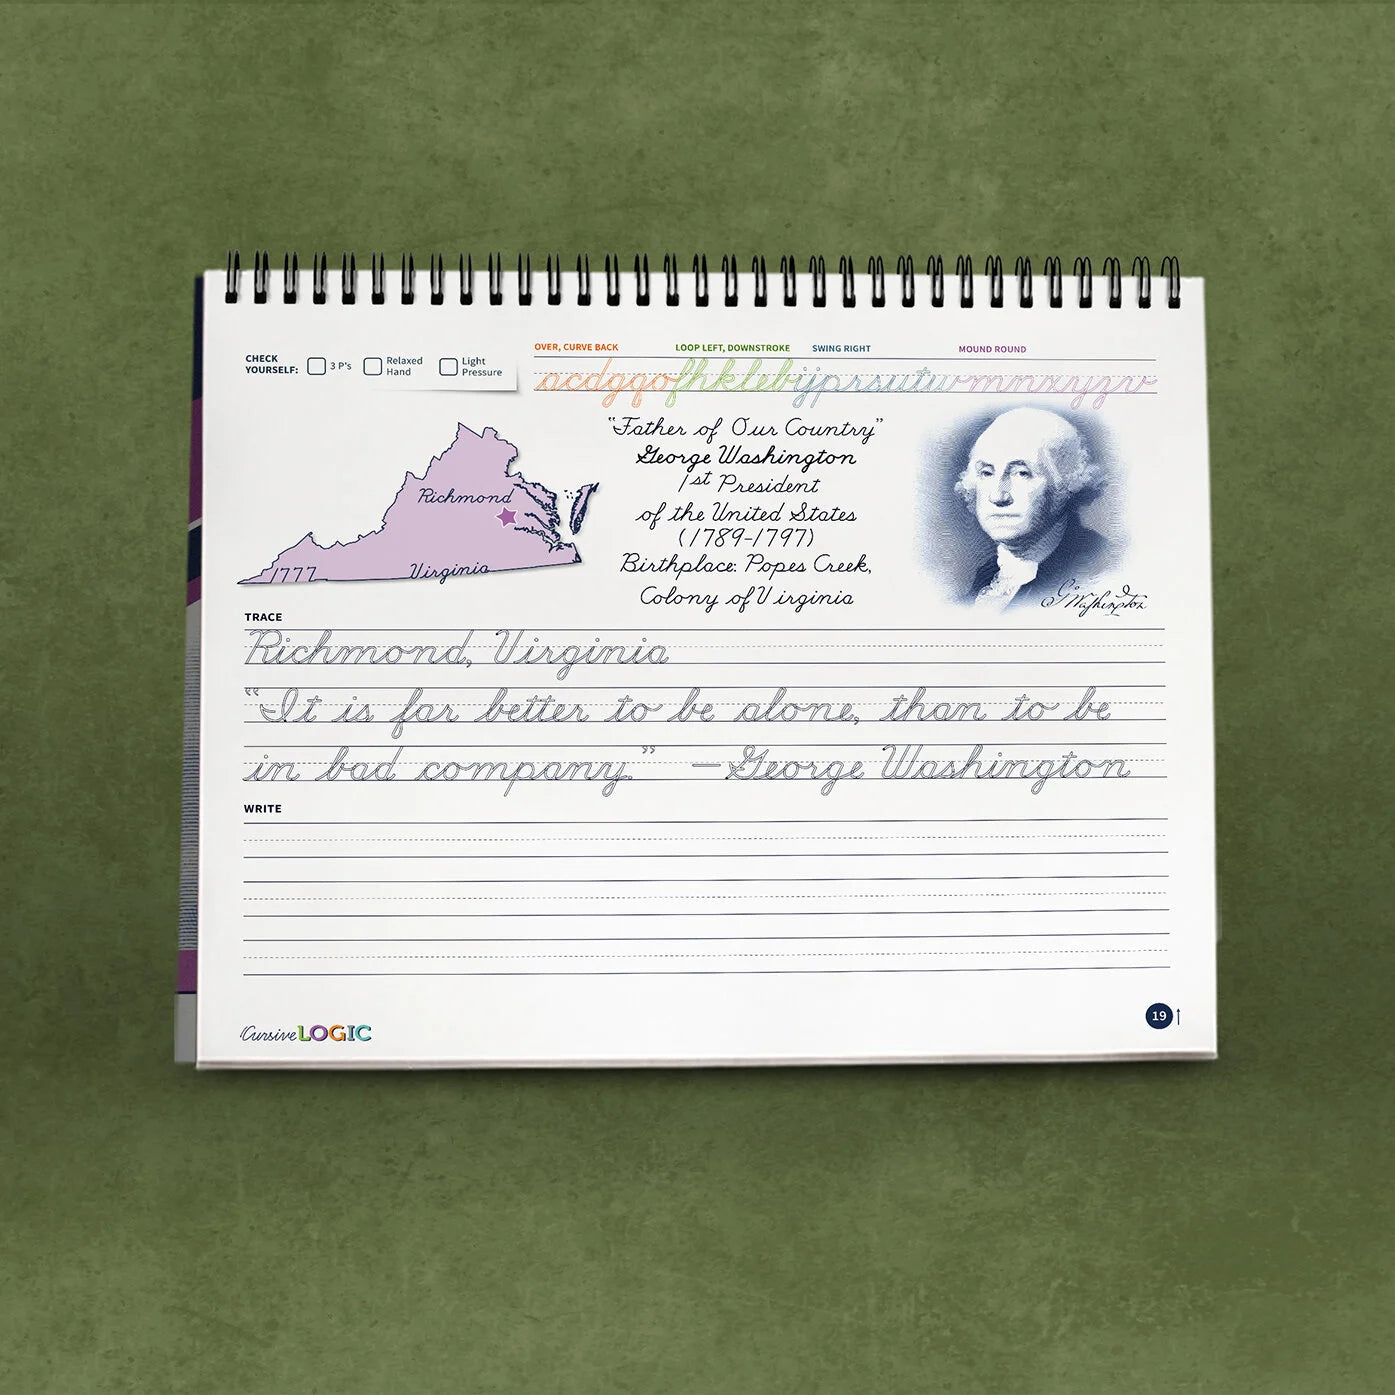 CHECK YOURSELF: 3 P's Relaxed Hand Light Pressure
OVER, CURVE BACK LOOP LEFT, DOWNSTROKE SWING RIGHT MOUND ROUND
"Father of Our Country"
George Washington
1st President
of the United States
(1789-1797)
Birthplace: Popes Creek,
Colony of Virginia
Richmond
1777 Virginia
G Washington
TRACE
Richmond, Virginia
"It is far better to be alone, than to be
in bad company." —George Washington
WRITE
CursiveLOGIC
19